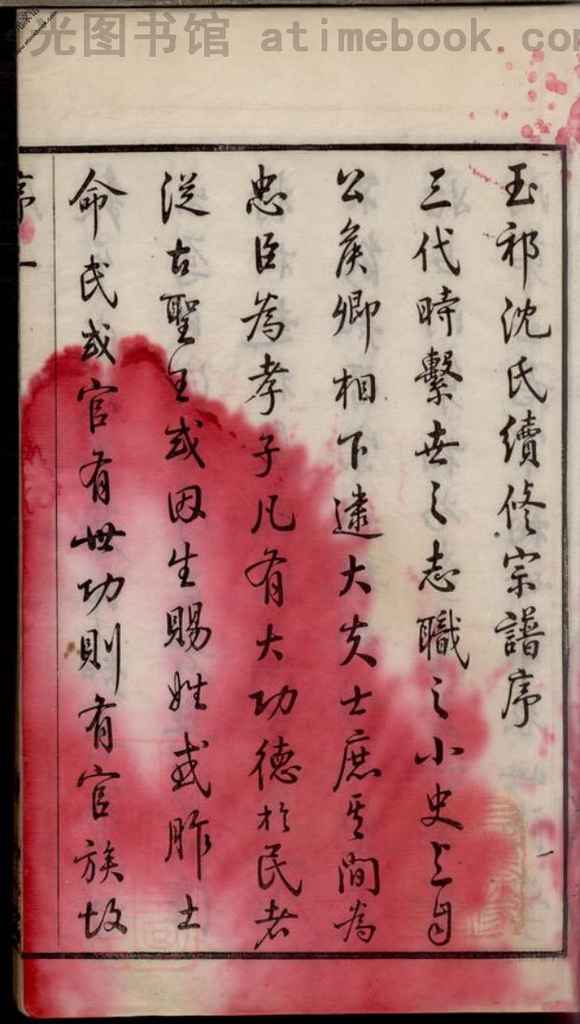 光图书馆 atimebook.com
玉祁沈氏續修宗譜序
三代時繫世之志職之小史上自
公侯卿相下逮大夫士庶其間為
忠臣為孝子凡有大功德於民者
從古聖王或因生賜姓或胙土
命氏或官有世功則有官族故
序 一